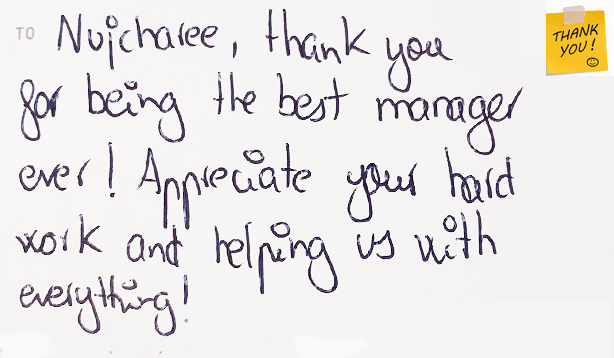 TO Nujcharee, thank you
for being the best manager
ever! Appreciate your hard
work and helping us with
everything!
THANK
YOU!